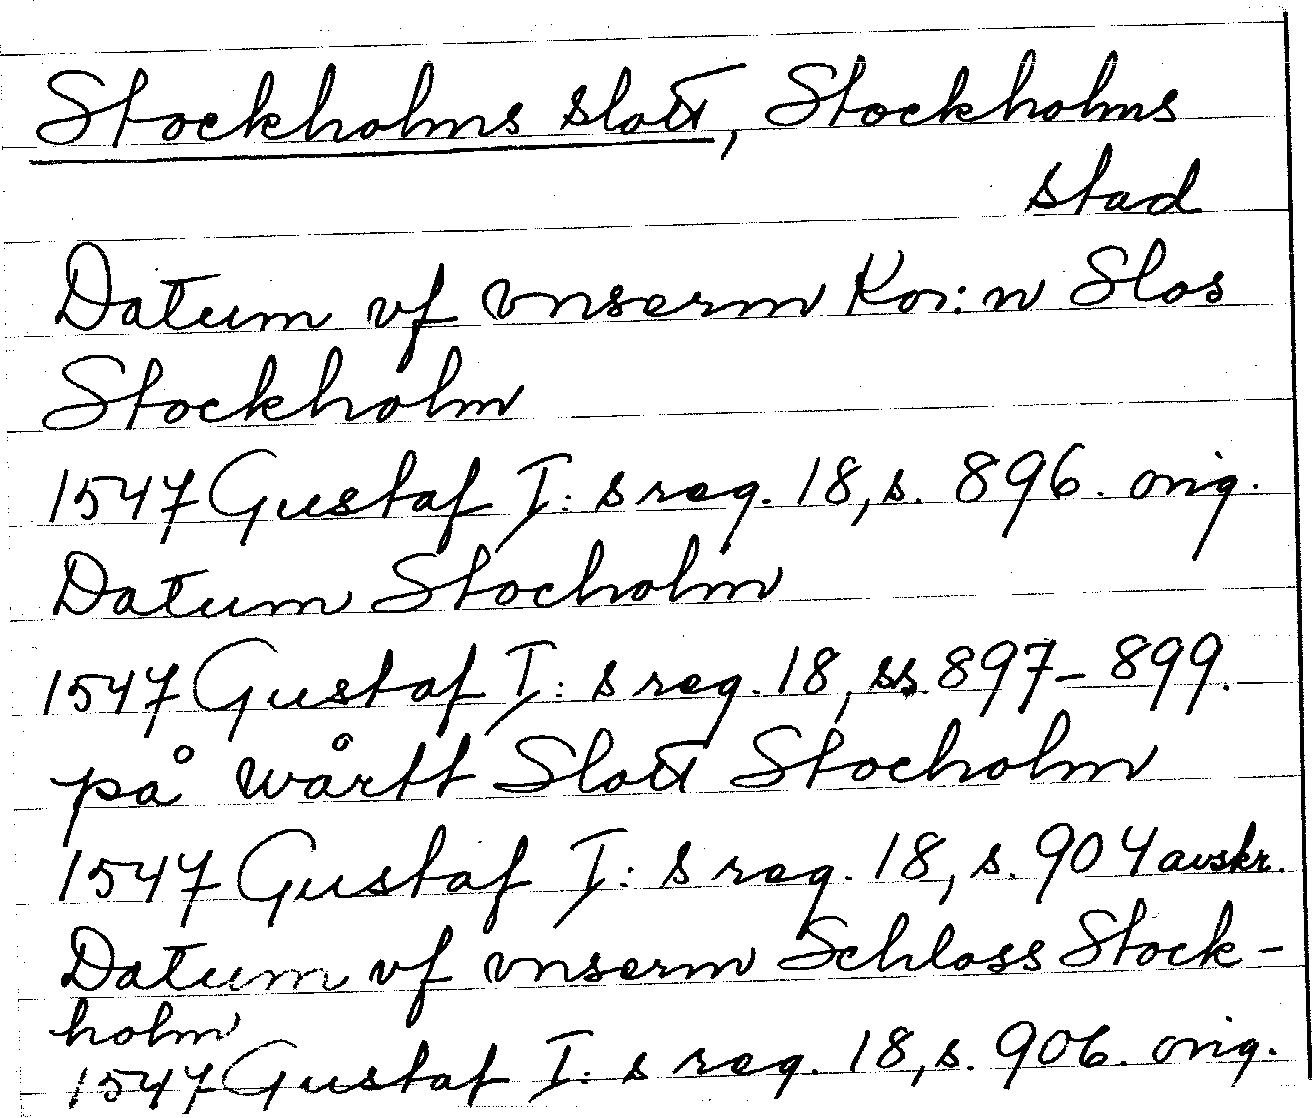 Stockholms slott, Stockholms
stad
Datum vf vnserm Kon:n Slos
Stockholm
1547 Gustaf I:s reg. 18, s. 896. orig.
Datum Stocholm
1547 Gustaf I:s reg. 18, ss. 897-899.
på wårtt Slott Stocholm
1547 Gustaf I:s reg. 18, s. 904 avskr.
Datum vf vnserm Schloss Stock-
holm
1547 Gustaf I:s reg. 18, s. 906. orig.